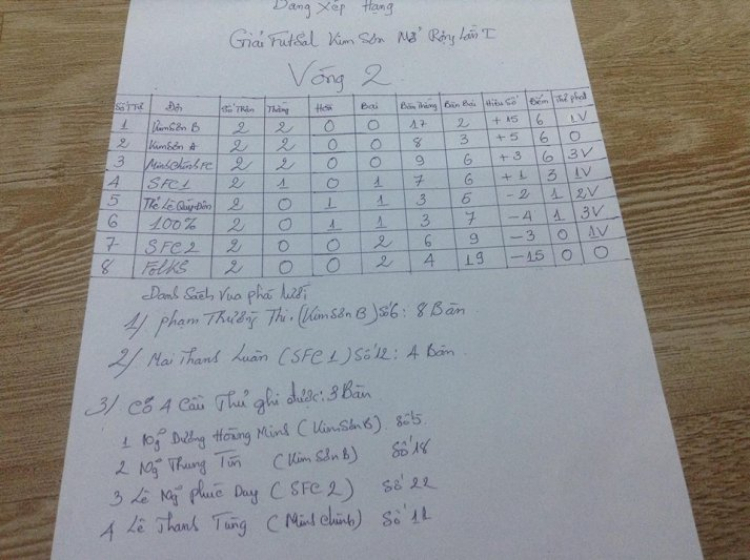 Bảng Xếp Hạng
Giải Futsal Kim Sơn Mở Rộng Lần I
Vòng 2
Số TT Đội Số Trận Thắng Hoà Bại Bàn Thắng Bàn Bại Hiệu Số Điểm Thẻ phạt
1 Kim Sơn B 2 2 0 0 17 2 +15 6 1V
2 Kim Sơn A 2 2 0 0 8 3 +5 6 0
3 Minh Chánh FC 2 2 0 0 9 6 +3 6 3V
4 SFC1 2 1 0 1 7 6 +1 3 1V
5 Lê Quý Đôn 2 0 1 1 3 5 -2 1 2V
6 100% 2 0 1 1 3 7 -4 1 3V
7 SFC2 2 0 0 2 6 9 -3 0 1V
8 FolKS 2 0 0 2 4 19 -15 0 0
Danh Sách Vua phá lưới
1/ Phạm Thường Thi. (Kim Sơn B) Số 6: 8 Bàn
2/ Mai Thanh Luân (SFC1) Số 12: 4 Bàn
3/ Có 4 Cầu Thủ ghi được: 3 Bàn
1 Ngỗ Dương Hoàng Minh (Kim Sơn B) Số 5
2 Ngỗ Trung Tín (Kim Sơn B) Số 18
3 Lê Ngỗ Phúc Duy (SFC2) Số 22
4 Lê Thanh Tùng (Minh Chánh) Số 11